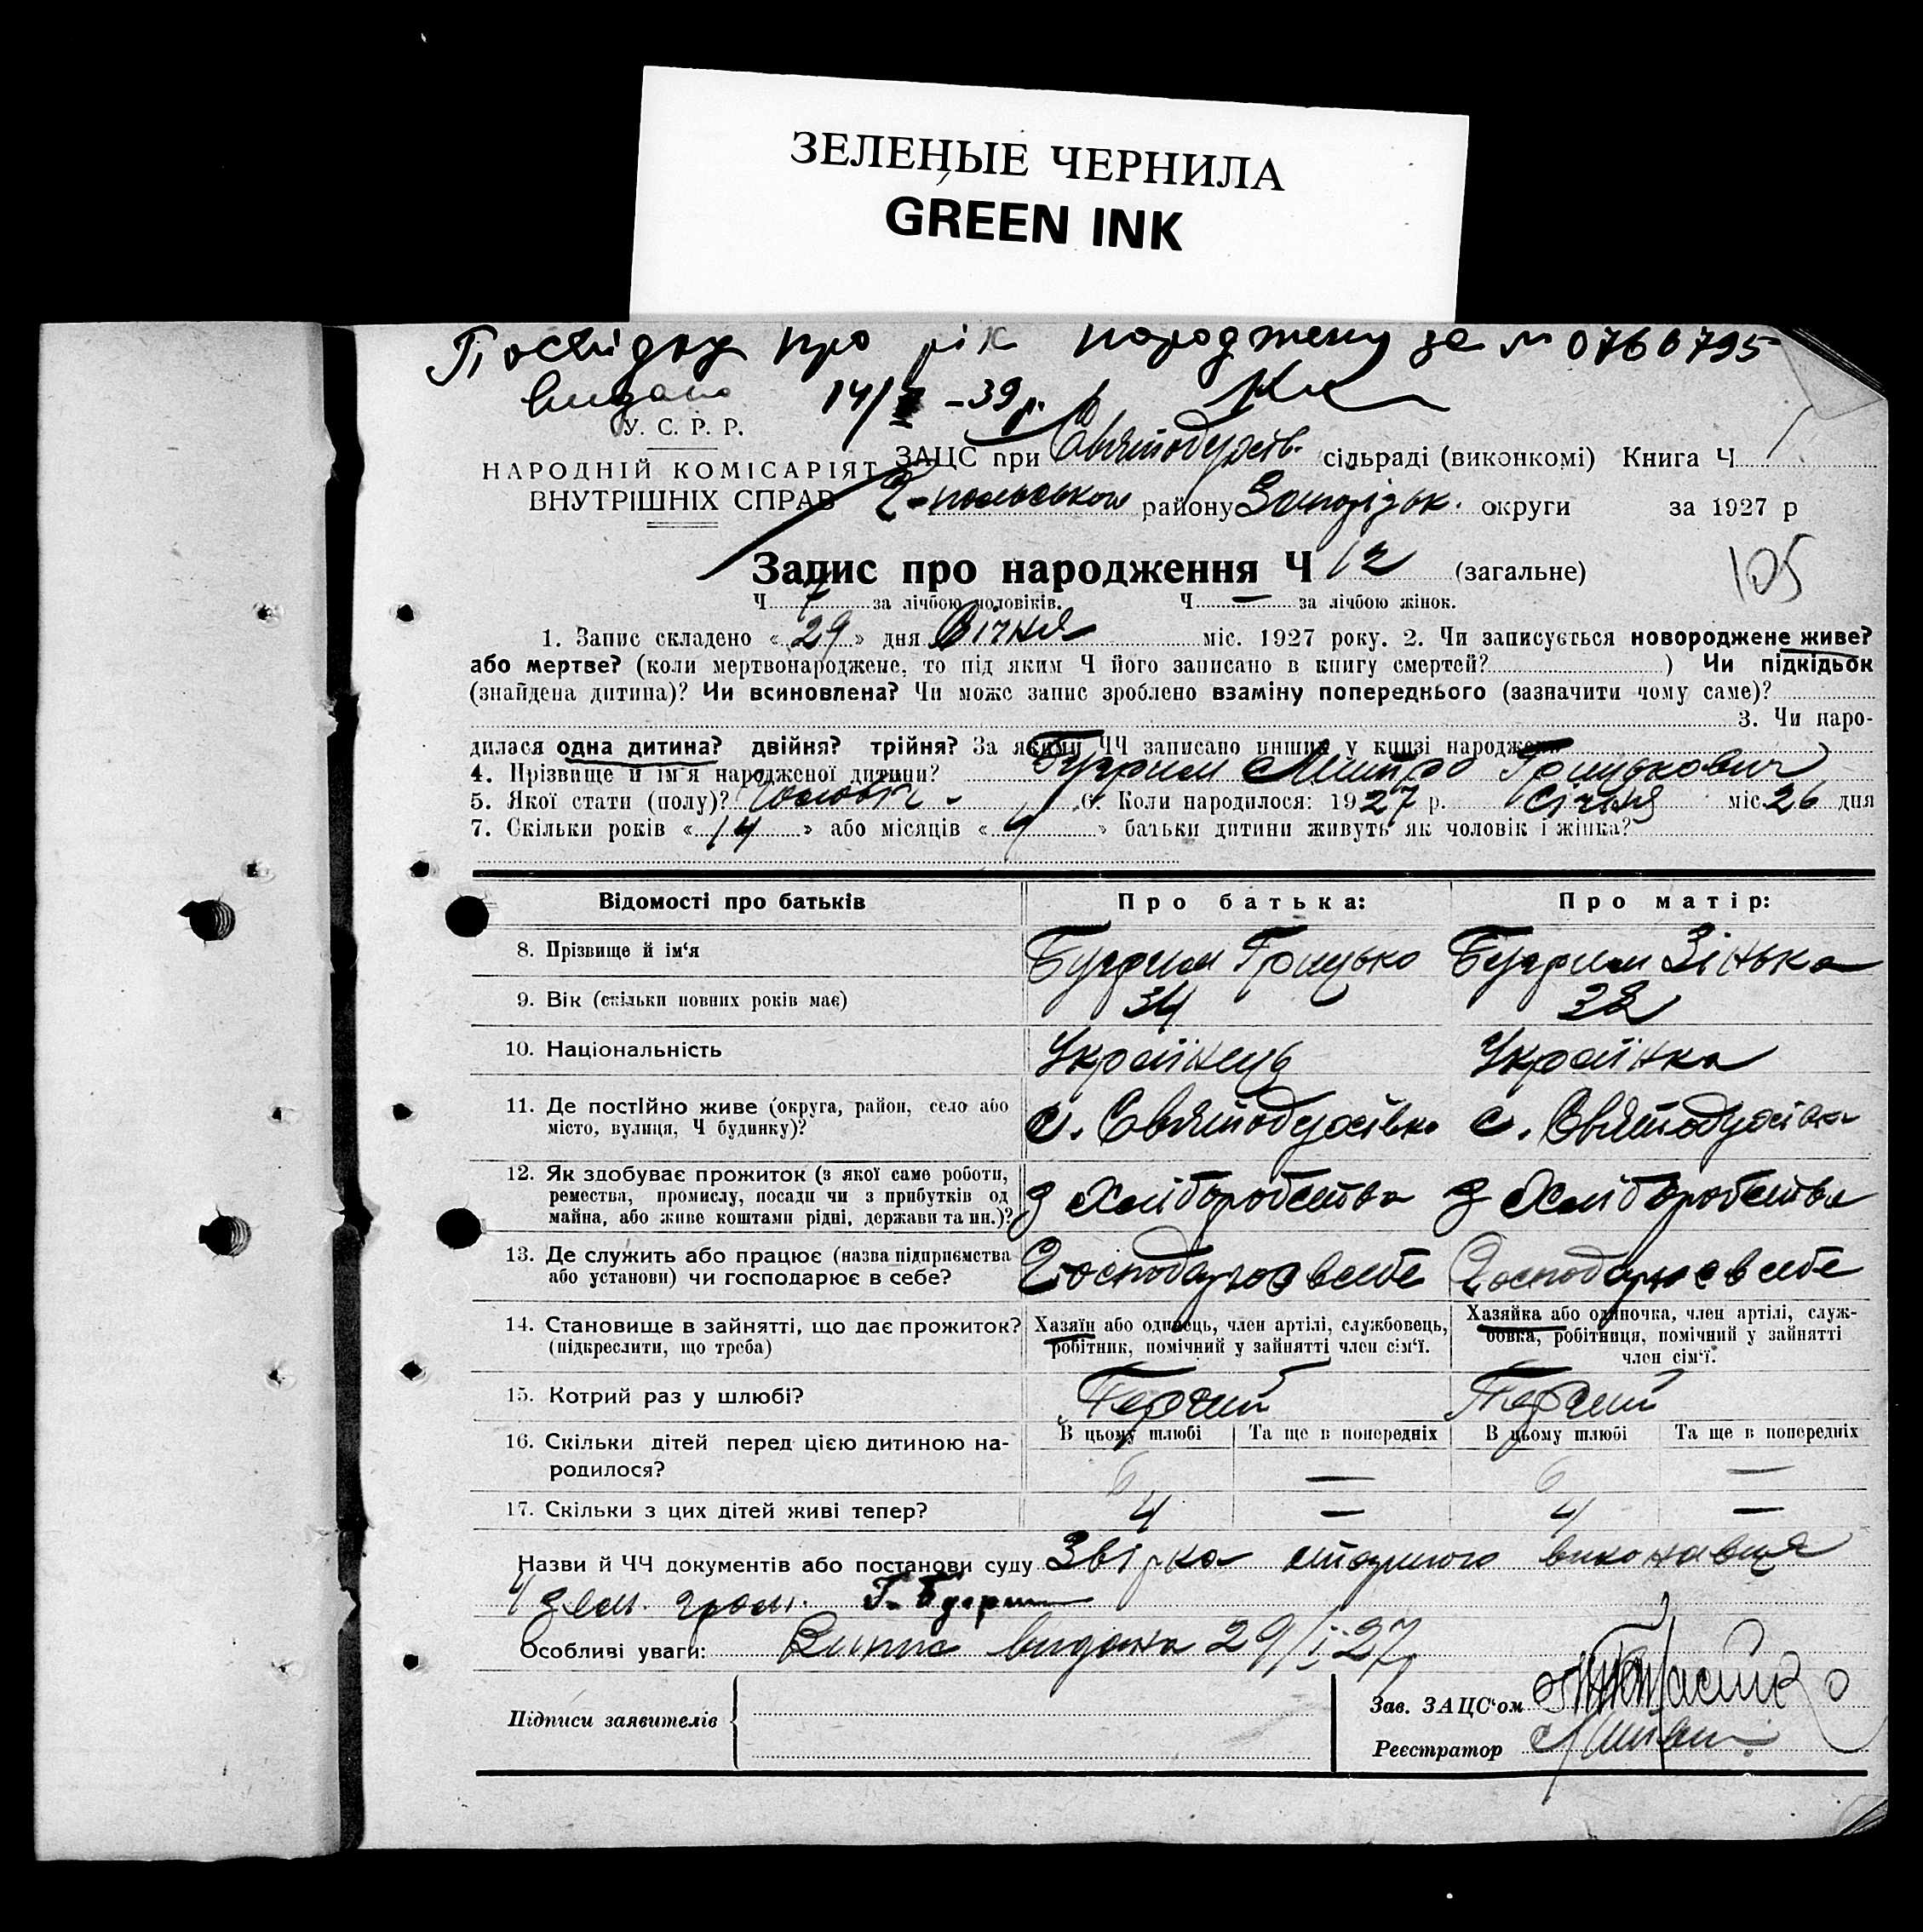 ЗЕЛЕНЫЕ ЧЕРНИЛА
GREEN INK
Посвідку про рік народження за № 0766795
видано 14/ -39 р.
У. С. Р. Р.
НАРОДНІЙ КОМІСАРІЯТ
ВНУТРІШНІХ СПРАВ
ЗАЦС при Святодухів. сільраді (виконкомі) Книга Ч 1
Г-польського району Запорізьк. округи за 1927 р
Запис про народження Ч 12 (загальне)
105
Ч 7 за лічбою чоловіків. Ч — за лічбою жінок.
1. Запис складено «29» дня Січня міс. 1927 року. 2. Чи записується новороджене живе?
або мертве? (коли мертвонароджене, то під яким Ч його записано в книгу смертей? ) Чи підкідьок
(знайдена дитина)? Чи всиновлена? Чи може запис зроблено взаміну попереднього (зазначити чому саме)?
3. Чи наро-
дилася одна дитина? двійня? трійня? За якими ЧЧ записано инших у книзі народжень
4. Прізвище й ім'я народженої дитини? Бугрим Митро Грицькович
5. Якої стати (полу)? Чоловіч. 6. Коли народилося: 1927 р. січня міс. 26 дня
7. Скільки років «14» або місяців « » батьки дитини живуть як чоловік і жінка?
Відомості про батьків Про батька: Про матір:
8. Прізвище й ім'я Бугрим Грицько Бугрим Зінька
9. Вік (скільки повних років має) 34 32
10. Національність Українець Українка
11. Де постійно живе (округа, район, село або
місто, вулиця, Ч будинку)? с. Святодухівка с. Святодухівка
12. Як здобуває прожиток (з якої саме роботи,
ремества, промислу, посади чи з прибутків од
майна, або живе коштами рідні, держави та ин.)? З Хліборобства З Хліборобства
13. Де служить або працює (назва підприємства
або установи) чи господарює в себе? Господарює в себе Господарює в себе
14. Становище в зайнятті, що дає прожиток?
(підкреслити, що треба)
Хазяїн або одинець, член артілі, службовець,
робітник, помічний у зайнятті член сім'ї.
Хазяйка або одиночка, член артілі, служ-
бовка, робітниця, помічний у зайнятті
член сім'ї.
15. Котрий раз у шлюбі? Перший Перший
В цьому шлюбі Та ще в попередніх В цьому шлюбі Та ще в попередніх
16. Скільки дітей перед цією дитиною на-
родилося? 6 — 6 —
17. Скільки з цих дітей живі тепер? 4 — 4 —
Назви й ЧЧ документів або постанови суду Звірка старшого виконавця
4 зем. гром.
Особливі уваги: Випис видана 29/I 27
Підписи заявителів
Зав. ЗАЦС'ом
Реєстратор